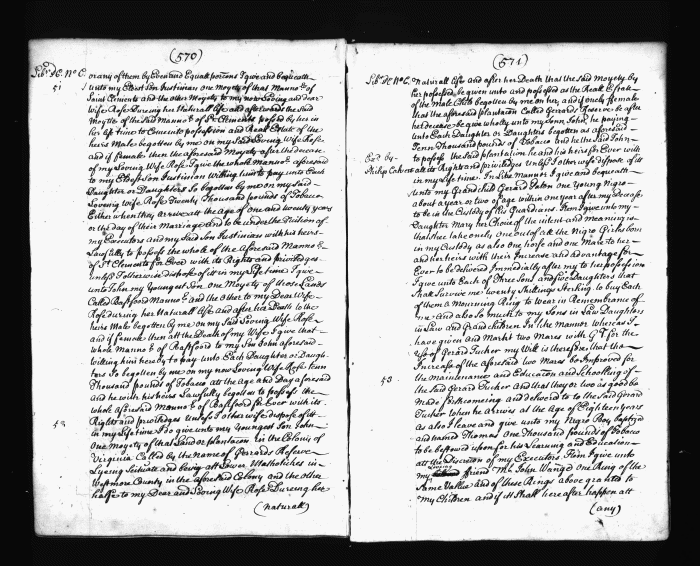 (570)
Lib. N° C. or any of them by Even and Equall portions I give and bequeath
51 unto my Eldest Son Justinian one moyety of that Mannor of
Saint Clements and the other Moyety to my now Loving and dear
wife Rose Dureing her Naturall life and afterwards the Said
Moytie of the Said Mannor of St Clements possed by her in
her life time to Come into possession and Reall Estate of the
heirs Male begotten by me on my Said Loving Wife Rose
and if female then the aforesaid Moyety after the decease
of my Loving Wife Rose I give the whole Mannor aforesaid
to my Eldest Son Justinian willing him to pay unto Each
Daughter or Daughters So begotten by me on my Said
Loveing wife Rose Twenty Thousand pounds of Tobacco
Either when they arrive att the Age of One and twenty years
or the day of their Marriage and to be under the Tuition of
my Executors and my Said Son Justinian with his heirs
Lawfully to possess the whole of the Aforesaid Mannor
of St Clements for Ever with its Rights and priviledges
unless I otherwise dispose of it in my life time I give
unto John my Youngest Son one Moyety of those Lands
Called Bassford Mannor and the other to my Dear Wife
Rose dureing her Naturall life and after her Death to the
heirs Male begotten by me on my Said Loving Wife Rose
and if female then att the Death of my Wife I give that
whole Mannor of Bassford to my Son John aforesaid
willing him hereby to pay unto Each Daughter or Daugh-
ters So begotten by me on my now Loveing Wife Rose tenn
Thousand pounds of Tobacco att the Age and Day aforesaid
and he with his heirs Lawfully begotten to possess the
whole aforesaid Mannor of Bassford for Ever with its
Rights and priviledges unless I otherwise dispose of itt
in my life time I do give unto my Youngest Son John
One Moyety of that Land or plantation in the Colony of
Virginia Called by the name of Gerrards Reserve
Lyeing Scituate and being att Lower Mathotickes in
Westmore County in the aforesaid Colony and the other
halfe to my Dear and Loving Wife Rose Dureing her
(naturall)
(571)
Lib. N° C. Naturall life and after her Death that the said Moyety by
her possessed be given unto and possessed as the Reall Estate
of the Male Child begotten by me on her, and if onely ffemale
that the aforesaid plantation Called Gerards Reserve be after
her decease be give wholly unto my Sonn John, he paying
unto Each Daughter or Daughters begotten as aforesaid
Tenn Thousand pounds of Tobacco and he the Said John
to possess the Said plantation he and his heirs for Ever with
all its Rights and priviledges Unless I other wise dispose of itt
Philip Calvert
in my life time. In Like Manner I give and bequeath
unto my Grand Child Gerard Peton one Young Negro
about a year or two of age within one year after my decease
to be in the Custody of his Guardians. Item I give unto my
Daughter Mary her Choice the intent and meaning is
that shee take onely one out of all the Nigro Girles born
in my Custody as also one horse and one Mare to her
and her heirs with their Increase and advantage for
Ever to be delivered Immediatly after my to her possession
I give unto Each of Three Sons and five Daughters that
Shall Survive me twenty Shillings Sterling to buy Each
of them a Mourning Ring to wear in Remembrance of
me and also So much to my Sons in Law Daughters
in Law and Grand Children In like Manner whereas I
have given and Markt two Mares with G T for the
Use of Gerard Tucker my Will is therefore that the
Increase of the aforesaid two Mares be Improved for
the maintenance and Education and Schoolling of
the Said Gerard Tucker and that they or two as good be
53 Made forthcomeing and delivered to the Said Gerard
Tucker when he arrives at the Age of Eighteen years
as also I leave and give unto my Negro Boy baptized
and named Thomas One Thousand pounds of Tobacco
to be bestowed upon for his Learning and Education
att the Discretion of my Executors Item I give unto
my Loving ffriend Mr John Wangd One Ring of the
Same Value and of these Rings above granted to
My Children and if itt Shall here after happen att
(any)